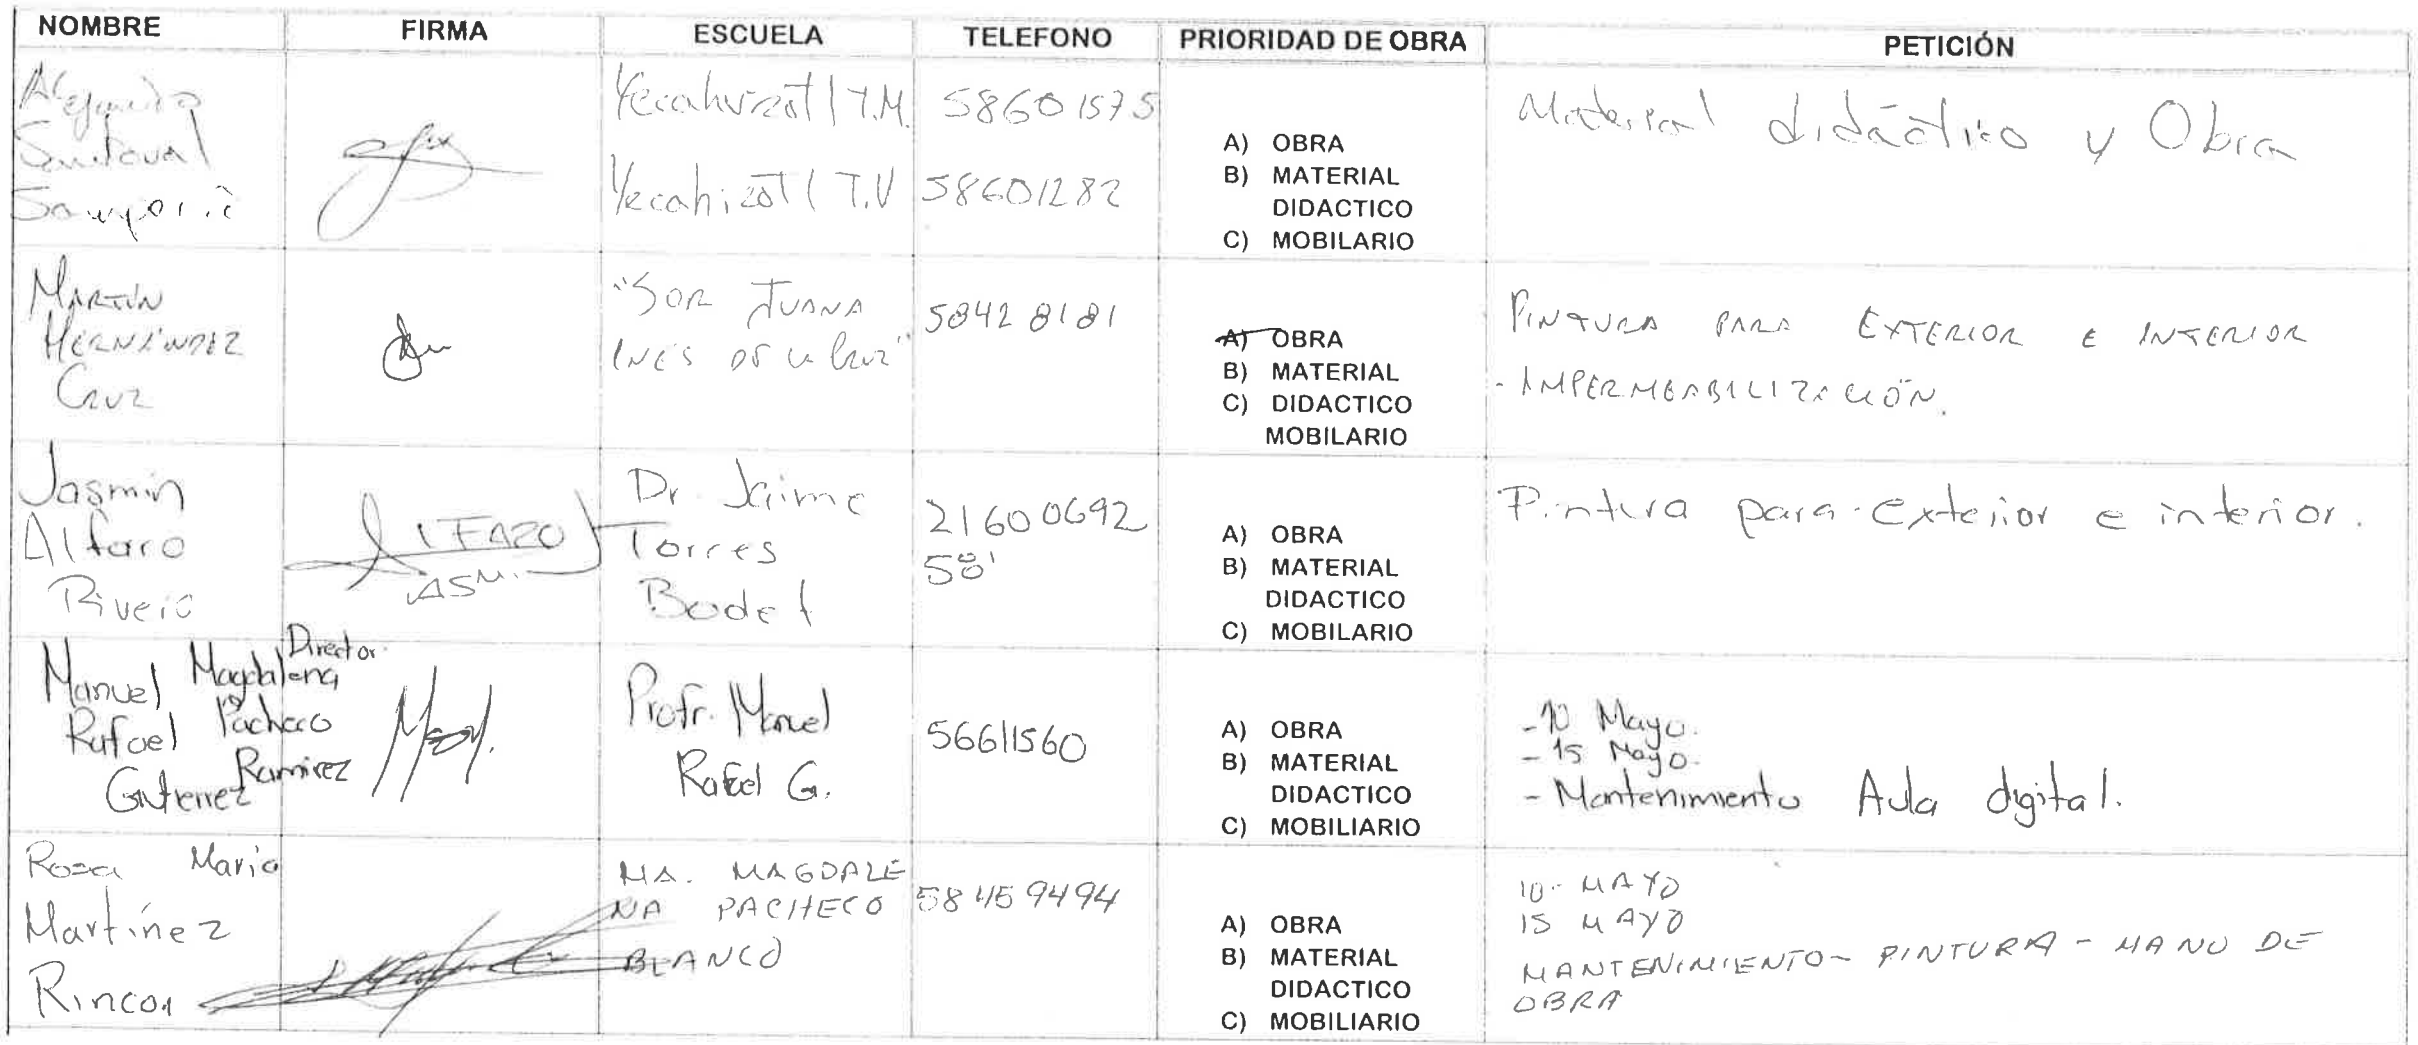 NOMBRE FIRMA ESCUELA TELEFONO PRIORIDAD DE OBRA PETICIÓN
Alejandro
Sandoval
Yecahuizotl T.M. 58601575
Yecahizotl T.V 58601282
A) OBRA
B) MATERIAL
DIDACTICO
C) MOBILARIO
Material didáctico y Obra
MARTÍN
HERNÁNDEZ
CRUZ
"SOR JUANA
INÉS DE LA CRUZ"
58428181
A) OBRA
B) MATERIAL
C) DIDACTICO
MOBILARIO
PINTURA PARA EXTERIOR E INTERIOR
- IMPERMEABILIZACIÓN.
Jasmin
Alfaro
Rivero
ALFARO
JASM.
Dr. Jaime
Torres
Bodet
21600692
58
A) OBRA
B) MATERIAL
DIDACTICO
C) MOBILARIO
Pintura para exterior e interior.
Director
Manuel Magdalena
Rafael Pacheco
Gutierrez Ramirez
Profr. Manuel
Rafael G.
56611560
A) OBRA
B) MATERIAL
DIDACTICO
C) MOBILIARIO
- 10 Mayo.
- 15 Mayo.
- Mantenimiento Aula digital.
Rosa Maria
Martínez
Rincon
MA. MAGDALE
NA PACHECO
BLANCO
58459494
A) OBRA
B) MATERIAL
DIDACTICO
C) MOBILIARIO
10- MAYO
15 MAYO
MANTENIMIENTO- PINTURA - MANO DE
OBRA